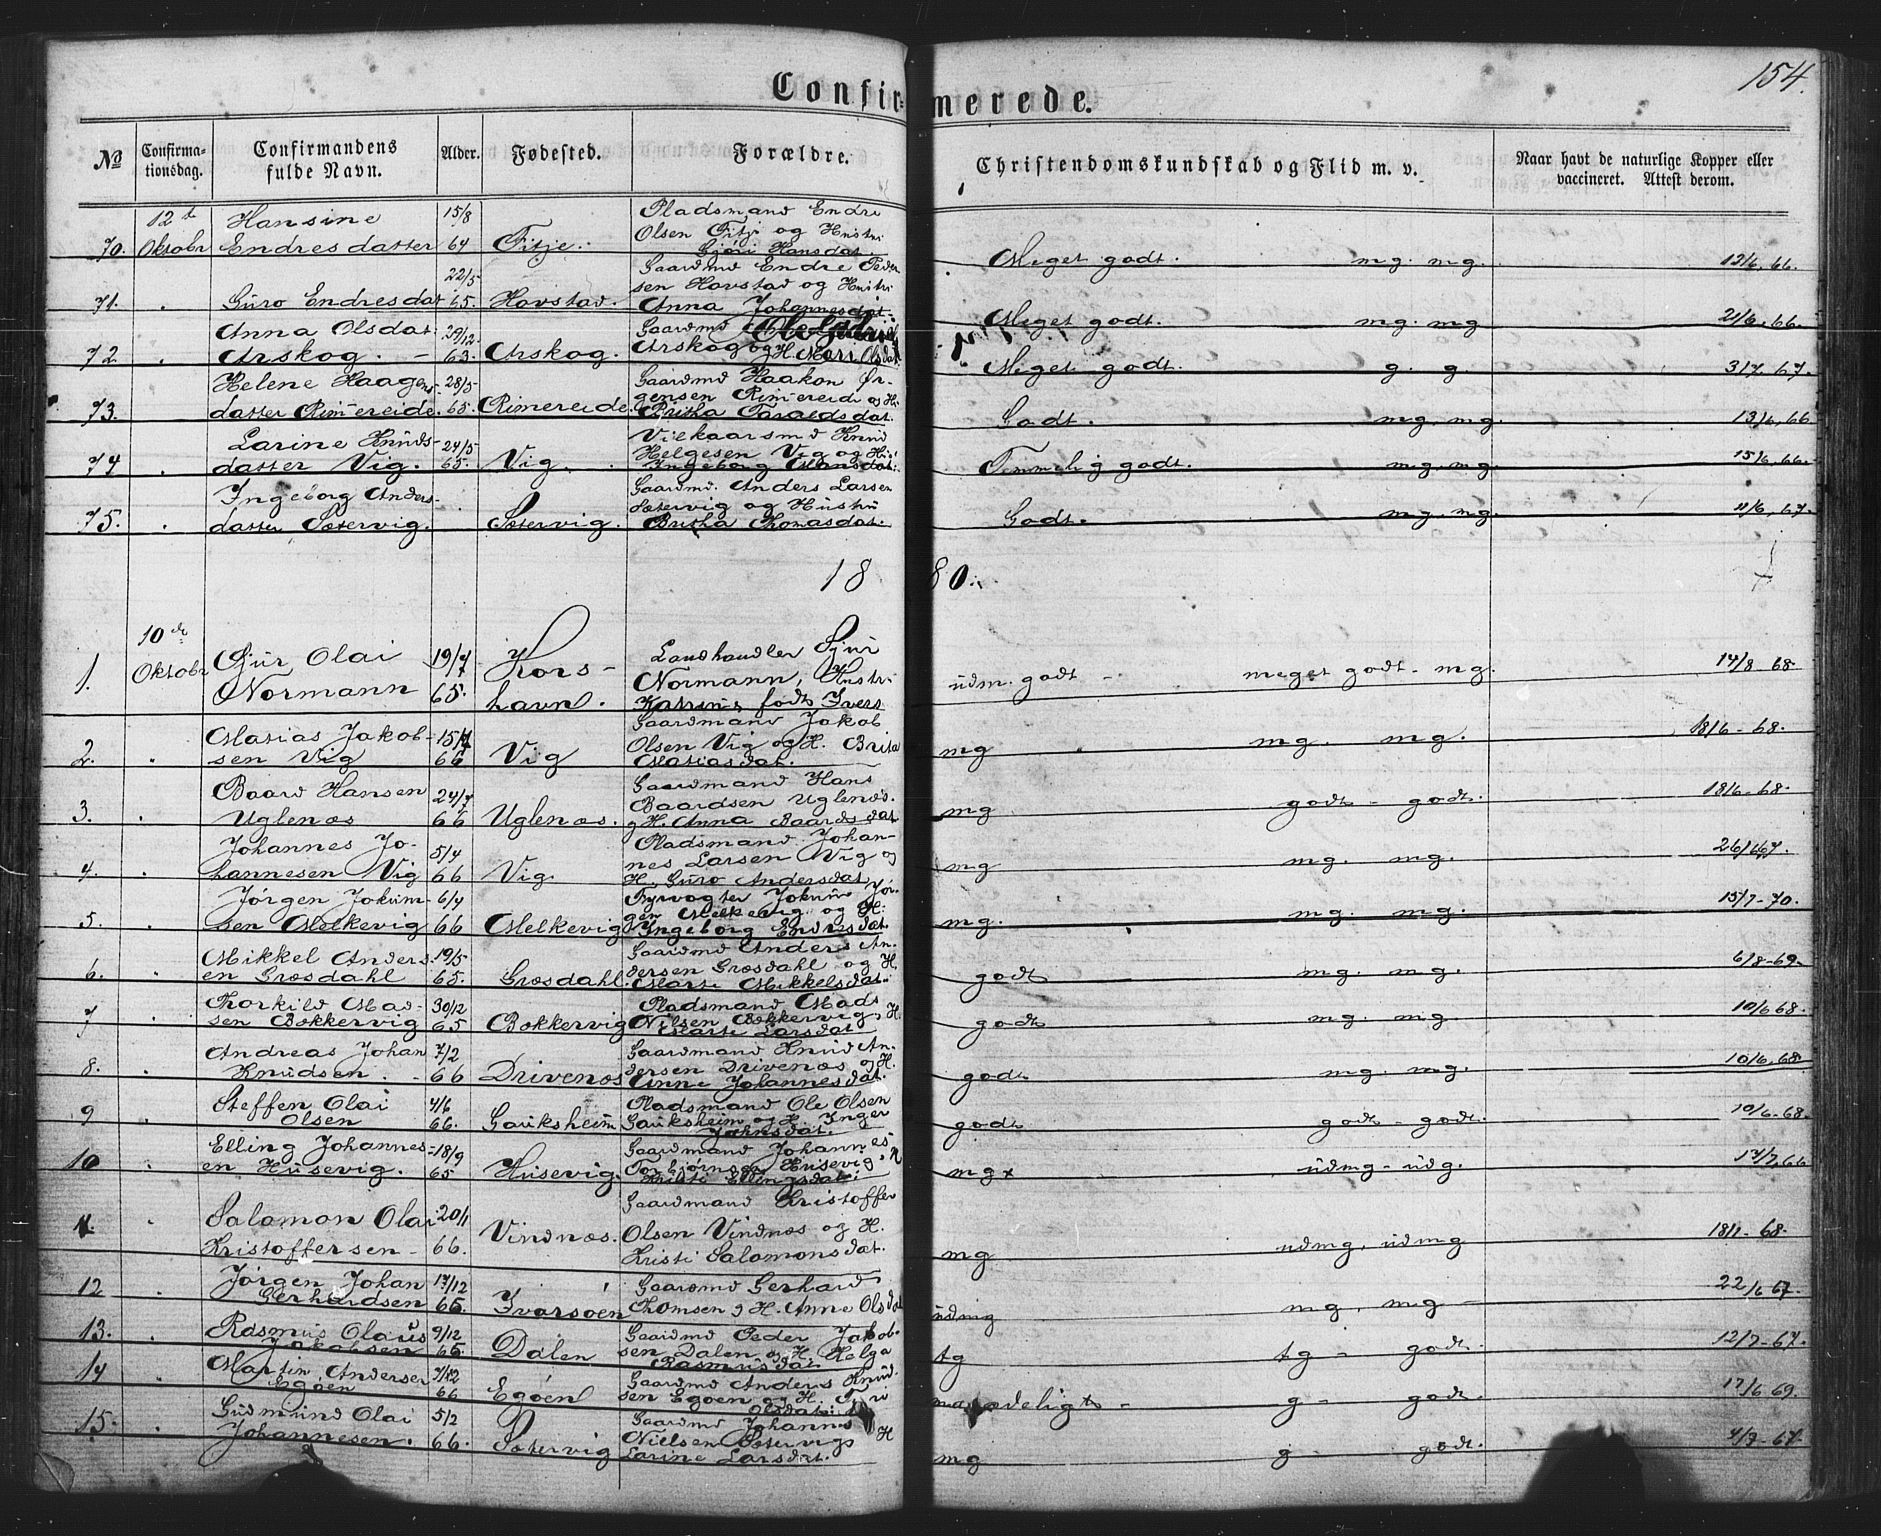 154.
Confirmerede.
No
Confirmationsdag.
Confirmandens fulde Navn.
Alder.
Fødested.
Forældre.
Christendomskundskab og Flid m. v.
Naar havt de naturlige Kopper eller vaccineret. Attest derom.
70. 12t Oktobr Hansine Endresdatter 15/8 64 Fitje. Pladsmand Endre Olsen Fitje og Hustru Gjøri Hansdat. Meget godt. mg. mg. 12/6, 66.
71. Guro Endresdat 22/5 65. Havstad. Gaardmd Endre Pedersen Havstad og Hustru Anna Johannesdat. Meget godt. mg. mg 21/6, 66.
72. Anna Olsdat. Arskog. 29/12. 63. Arskog. Gaardmd Arskog og H. Mari Olsdat Meget godt. g. g. 3/7. 67.
73. Helene Haagensdatter Rimmereide. 28/5 65. Rimereide. Gaardmd Haakon Ørgensen Rimereide og H. Britha Taraldsdat. Godt. mg, mg. 13/6, 66
74. Larine Knudsdatter Vig. 24/5 65. Vig. Vilkaarsmd Knud Helgesen Vig og H. Ingeborg Hansdat. Temmelig godt. mg. mg. 15/6, 66.
75. Ingeborg Andersdatter Sætervig. Sætervig. Gaardmd. Anders Larsen Sætervig og Hustru Britha Thomasdat. Godt. mg, mg. 11/6, 67.
1880.
1. 10de Oktobr Sjur Olai Normann 19/7 65. Korshavn. Landhandler Sjur Normann, Hustru Katrine født Ivers udm. godt - meget godt - mg. 14/8 - 68
2. Matias Jakobsen Vig 66 Vig Gaardmand Jakob Olsen Vig og H. Brita Matiasdat. mg mg. mg. 18/6 - 68.
3. Baard Hansen Uglenæs 24/7 66 Uglenæs. Gaardmand Hans Baardsen Uglenæs. g H. Anna Baardsdat mg godt - godt. 18/6 - 68.
4. Johannes Johannesen Vig 5/4 66 Vig. Pladsmand Johannes Larsen Vig og H. Guro Andersdat mg mg. mg. 26/6 67.
5. Jørgen Jokumsen Melkevig 6/4 66 Melkevig Fyrvogter Jokum Jørgen Melkevig og H. Ingeborg Endresdat. mg. mg. mg. 15/7 - 70.
6. Mikkel Andersen Græsdahl 19/5 65. Græsdahl. Gaardmd Anders Andersen Græsdahl og H. Marte Mikkelsdat. godt mg. mg. 6/8 - 69.
7 Thorkild Madsen Bokkervig 30/12 65 Bokkervig Pladsmand Mads Nilsen Bokkervig, H. Marte Larsdat godt mg. mg. 10/6 68.
8. Andreas Johan Knudsen. 7/2 66 Drivenæs Gaardmand Knud Andersen Drivenæs og H. Anne Johannesdat. godt mg. mg. 10/6, 68.
9 Steffen Olai Olsen 4/6 66. Gauksheim Pladsmand Ole Olsen Gauksheim og H. Inger Johnsdat. godt godt - godt. 10/6 - 68.
10 Elling Johannesen Husevig. 18/9 65 Husevig. Gaardmand Johannes Torbjørnsen Husevig, H Kristi Ellingsdat. mg+ udmg - udg. 17/7, 66
11. Salomon Olai Kristoffersen 20/1 66. Vindnæs. Gaardmand Kristoffer Olsen Vindnæs og H. Kristi Salomonsdat. mg udmg, udmg 18/1 - 68.
12 Jørgen Johan Gerhardsen 17/12 65. Ivarsøen Gaardmd Gerhard Thomsen g H. Anne Olsdat udmg mg, mg 22/6 67.
13. Rasmus Olaus Jakobsen 9/12 65. Dalen Gaardmd Peder Jakobsen Dalen og H. Helga Rasmusdat tg tg - godt. 12/7 - 67.
14 Martin Andersen Egøen 66 Egøen Gaardmd Anders Knudsen Egøen og H. Olsdat g - godt. 17/6 69.
15. Gudmund Olai Johannesen. 5/2 66. Sætervig Gaardmd Johannes Nielsen Sætervig H Larine Larsdat. mg g - godt. 4/7 - 67.